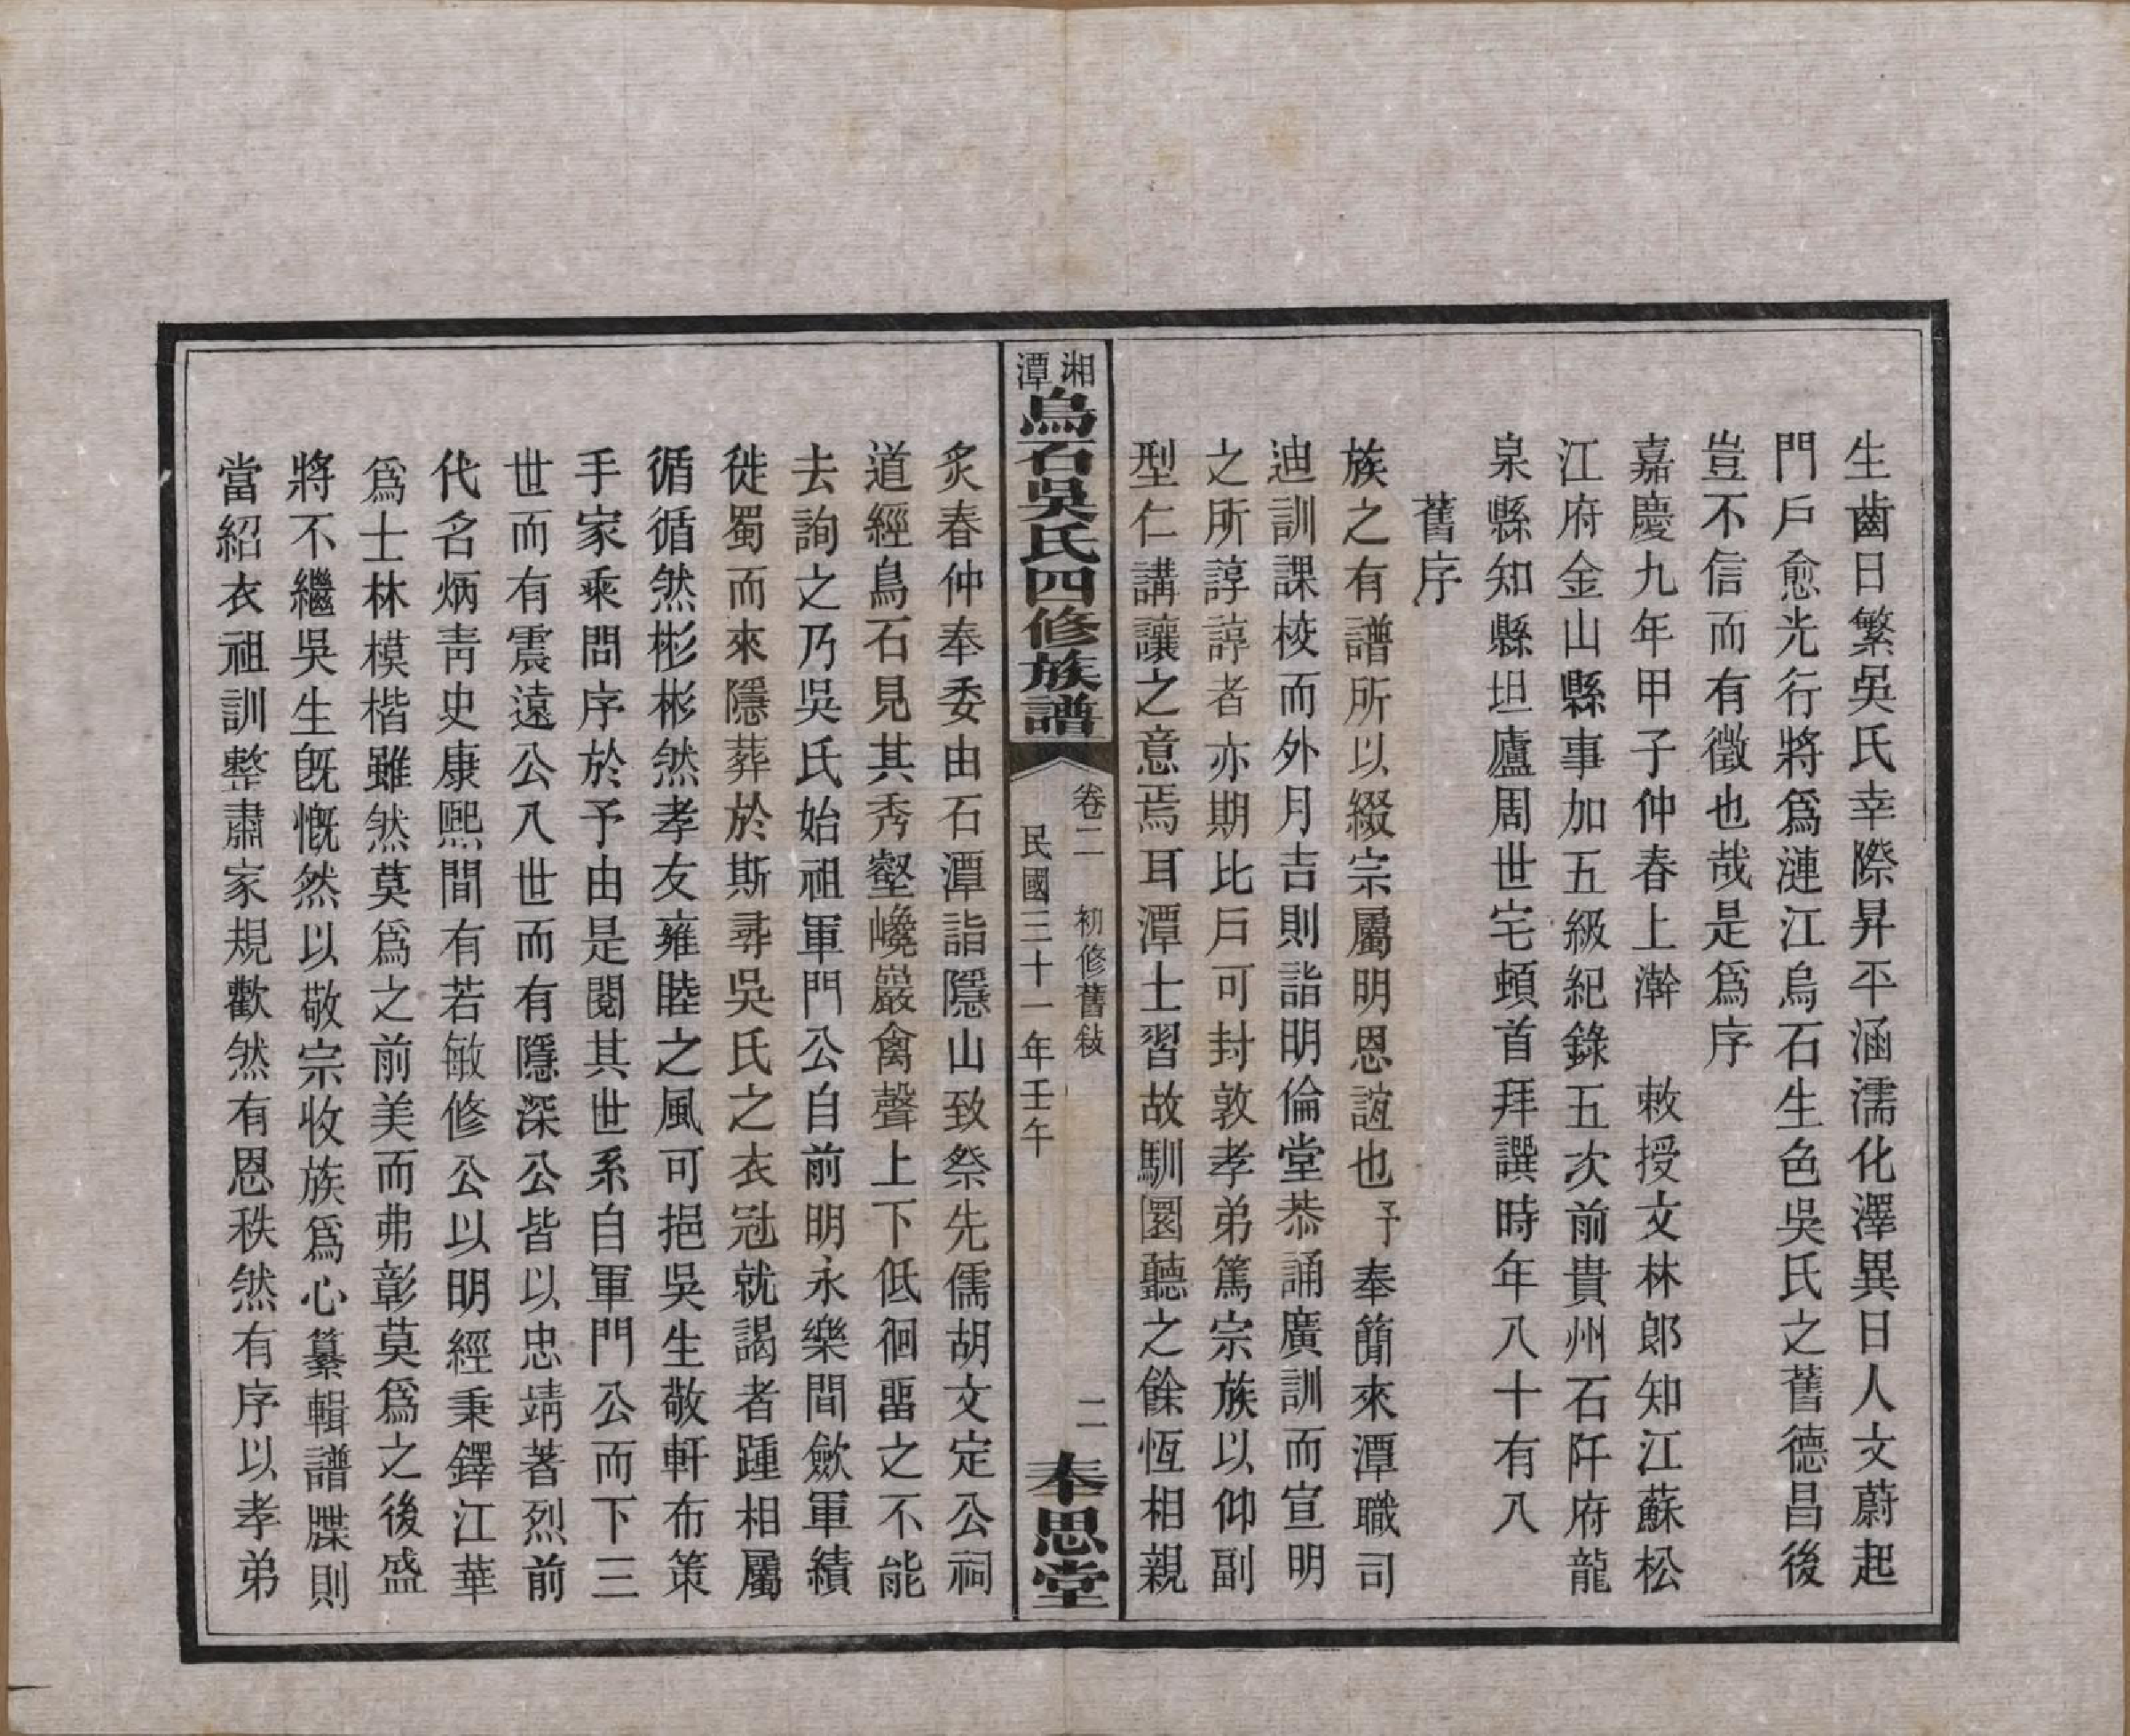 生齒日繁吳氏幸際昇平涵濡化澤異日人文蔚起
門戶愈光行將爲漣江烏石生色吳氏之舊德昌後
豈不信而有徵也哉是爲序
嘉慶九年甲子仲春上澣　敕授文林郎知江蘇松
江府金山縣事加五級紀錄五次前貴州石阡府龍
泉縣知縣坦廬周世宅頓首拜譔時年八十有八
舊序
族之有譜所以綴宗屬明恩誼也予奉簡來潭職司
迪訓課校而外月吉則詣明倫堂恭誦廣訓而宣明
之所諄諄者亦期比戶可封敦孝弟篤宗族以仰副
型仁講讓之意焉耳潭士習故馴圜聽之餘恆相親
湘潭烏石吳氏四修族譜
卷二　初修舊敍　二
民國三十一年壬午
奉思堂
炙春仲奉委由石潭詣隱山致祭先儒胡文定公祠
道經烏石見其秀壑巉巖禽聲上下低徊畱之不能
去詢之乃吳氏始祖軍門公自前明永樂間歛軍績
徙蜀而來隱葬於斯尋吳氏之衣冠就謁者踵相屬
循循然彬彬然孝友雍睦之風可挹吳生敬軒布策
手家乘問序於予由是閱其世系自軍門公而下三
世而有震遠公八世而有隱深公皆以忠靖著烈前
代名炳靑史康熙間有若敏修公以明經秉鐸江華
爲士林模楷雖然莫爲之前美而弗彰莫爲之後盛
將不繼吳生旣慨然以敬宗收族爲心纂輯譜牒則
當紹衣祖訓整肅家規歡然有恩秩然有序以孝弟